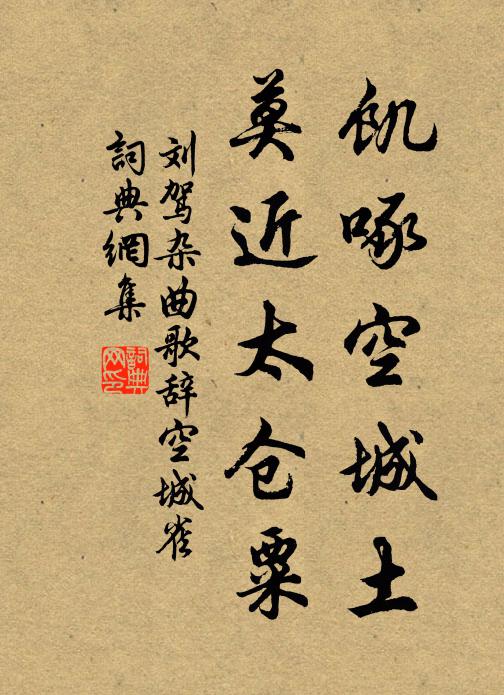 飢啄空城土
莫近太仓粟
刘驾杂曲歌辞空城雀
詞典網集
詞典网印